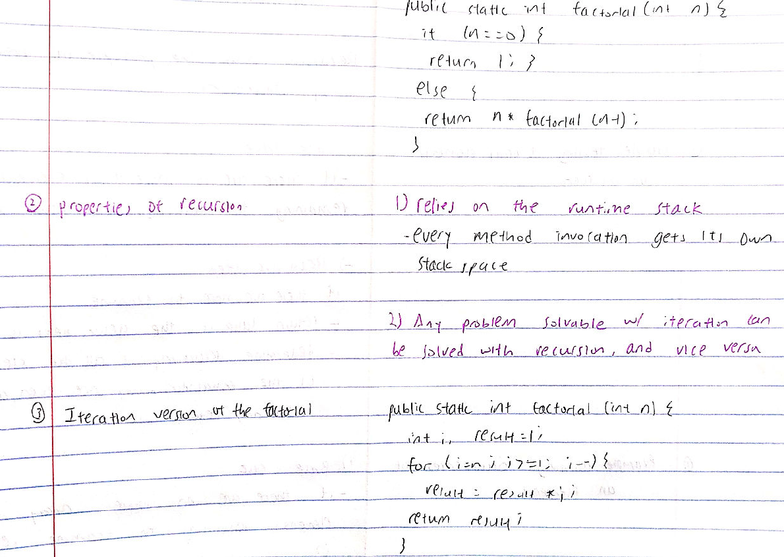 public static int factorial (int n) {
if (n==0) {
return 1; }
else {
return n * factorial (n-1);
}
② properties of recursion
1) relies on the runtime stack
-every method invocation gets its own
stack space
2) Any problem solvable w/ iteration can
be solved with recursion, and vice versa
③ Iteration version of the factorial
public static int factorial (int n) {
int i, result=1;
for (i=n; i>=1; i--) {
result = result * i;
return result;
}